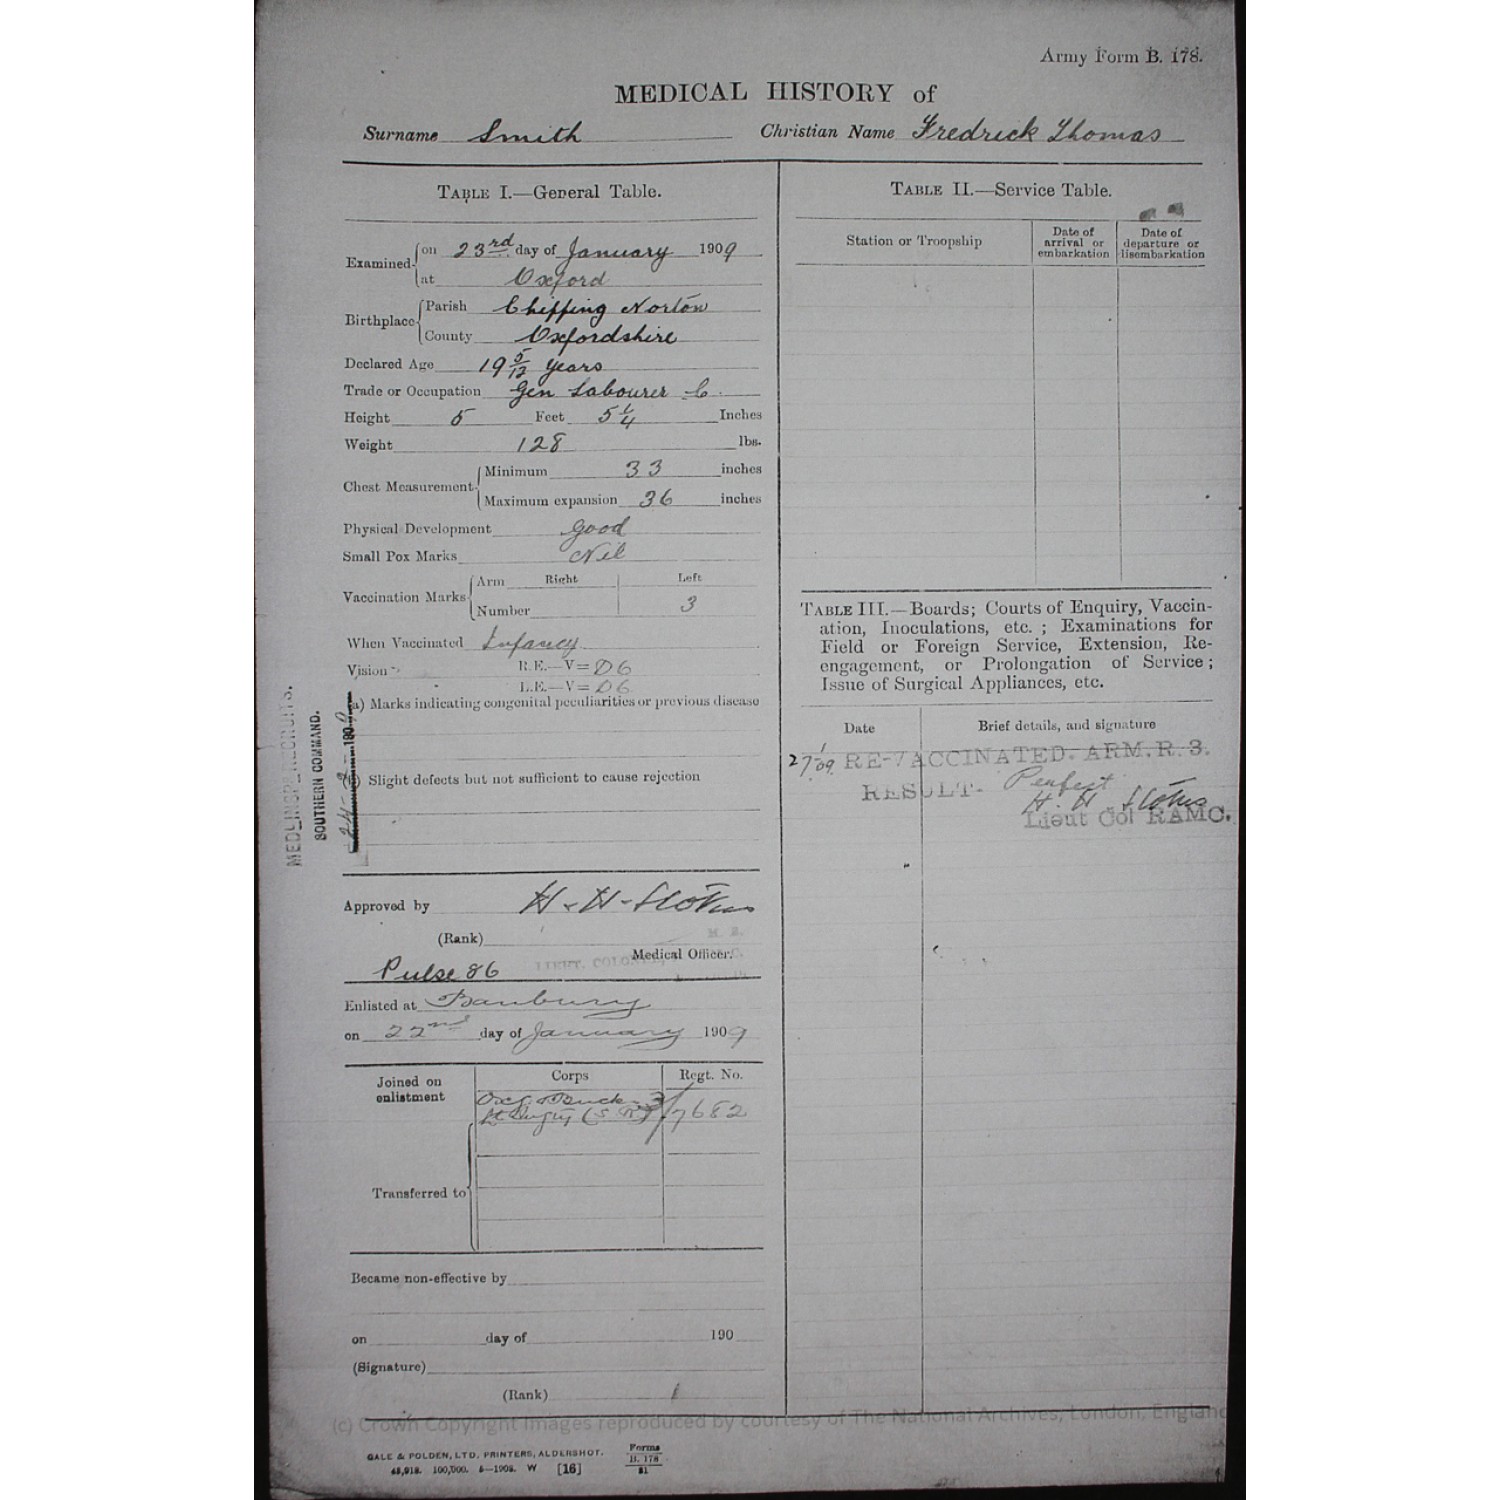 Army Form B. 178.
MEDICAL HISTORY of
Surname Smith Christian Name Fredrick Thomas
TABLE I.—General Table.
Examined on 23rd day of January 1909
at Oxford
Birthplace Parish Chipping Norton
County Oxfordshire
Declared Age 19 5/12 years
Trade or Occupation Gen Labourer
Height 5 Feet 5 1/4 Inches
Weight 128 lbs.
Chest Measurement Minimum 33 inches
Maximum expansion 36 inches
Physical Development good
Small Pox Marks Nil
Vaccination Marks Arm Right Left
Number 3
When Vaccinated Infancy
Vision R.E.—V= D6
L.E.—V= D6
(a) Marks indicating congenital peculiarities or previous disease
Slight defects but not sufficient to cause rejection
SOUTHERN COMMAND.
Approved by H. H.
(Rank)
Medical Officer.
LIEUT. COLONEL
Pulse 86
Enlisted at Banbury
on 22nd day of January 1909
Joined on enlistment
Corps Regt. No.
Oxf. & Bucks 3/7682
Transferred to
Became non-effective by
on day of 190
(Signature)
(Rank)
TABLE II.—Service Table.
Station or Troopship
Date of arrival or embarkation
Date of departure or disembarkation
TABLE III.—Boards; Courts of Enquiry, Vaccin-
ation, Inoculations, etc. ; Examinations for
Field or Foreign Service, Extension, Re-
engagement, or Prolongation of Service ;
Issue of Surgical Appliances, etc.
Date Brief details, and signature
27/1/09 RE-VACCINATED. ARM. R. 3.
RESULT- Perfect
H. H.
Lieut Col RAMC.
(c) Crown Copyright Images reproduced by courtesy of The National Archives, London, England
GALE & POLDEN, LTD. PRINTERS, ALDERSHOT.
100,000. 1908. W [16]
Forms
B. 178